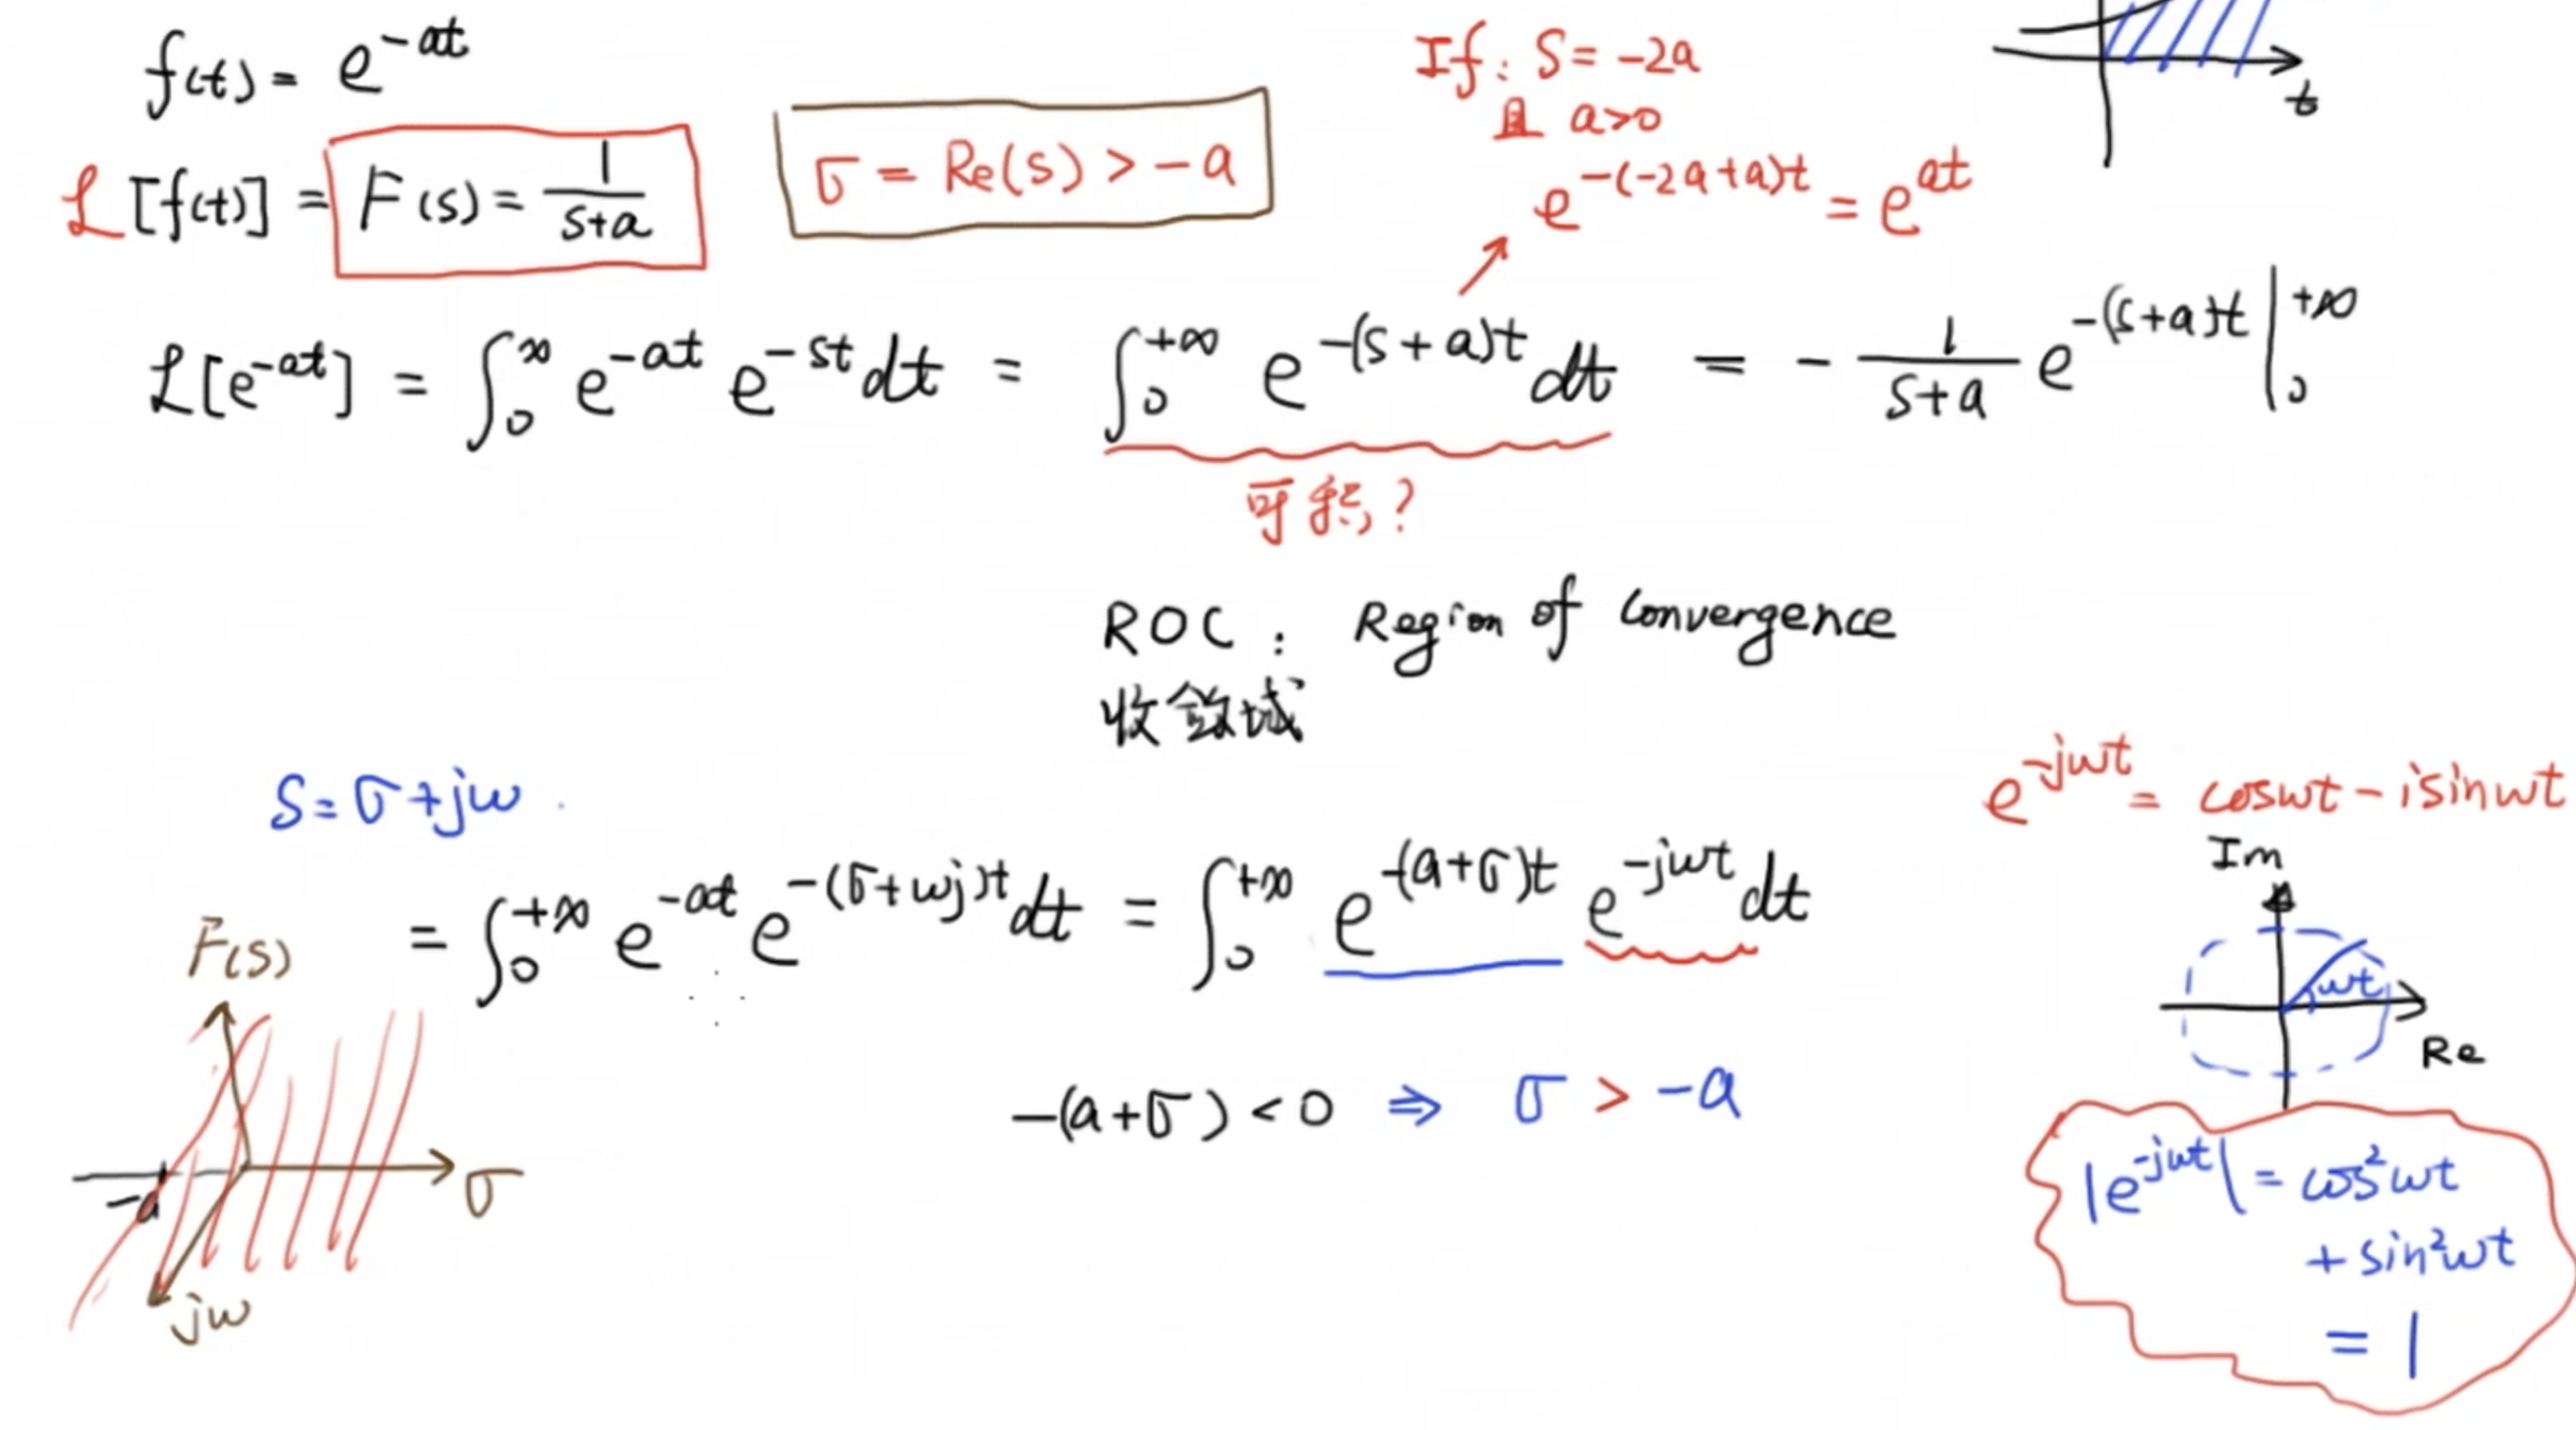 f(t) = e^{-at}
ℒ[f(t)] = F(s) = \frac{1}{s+a}
σ = Re(s) > -a
If: S = -2a
且 a>0
e^{-(-2a+a)t} = e^{at}
t
ℒ[e^{-at}] = ∫_0^∞ e^{-at} e^{-st} dt = ∫_0^{+∞} e^{-(s+a)t} dt = -\frac{1}{s+a} e^{-(s+a)t} |_0^{+∞}
可积?
ROC: Region of Convergence
收敛域
S = σ+jω
e^{-jωt} = cosωt - isinωt
= ∫_0^{+∞} e^{-at} e^{-(σ+ωj)t} dt = ∫_0^{+∞} e^{-(a+σ)t} e^{-jωt} dt
Im
ωt
Re
-(a+σ) < 0 ⇒ σ > -a
F(s)
-a
σ
jω
|e^{-jωt}| = cos²ωt
+ sin²ωt
= 1